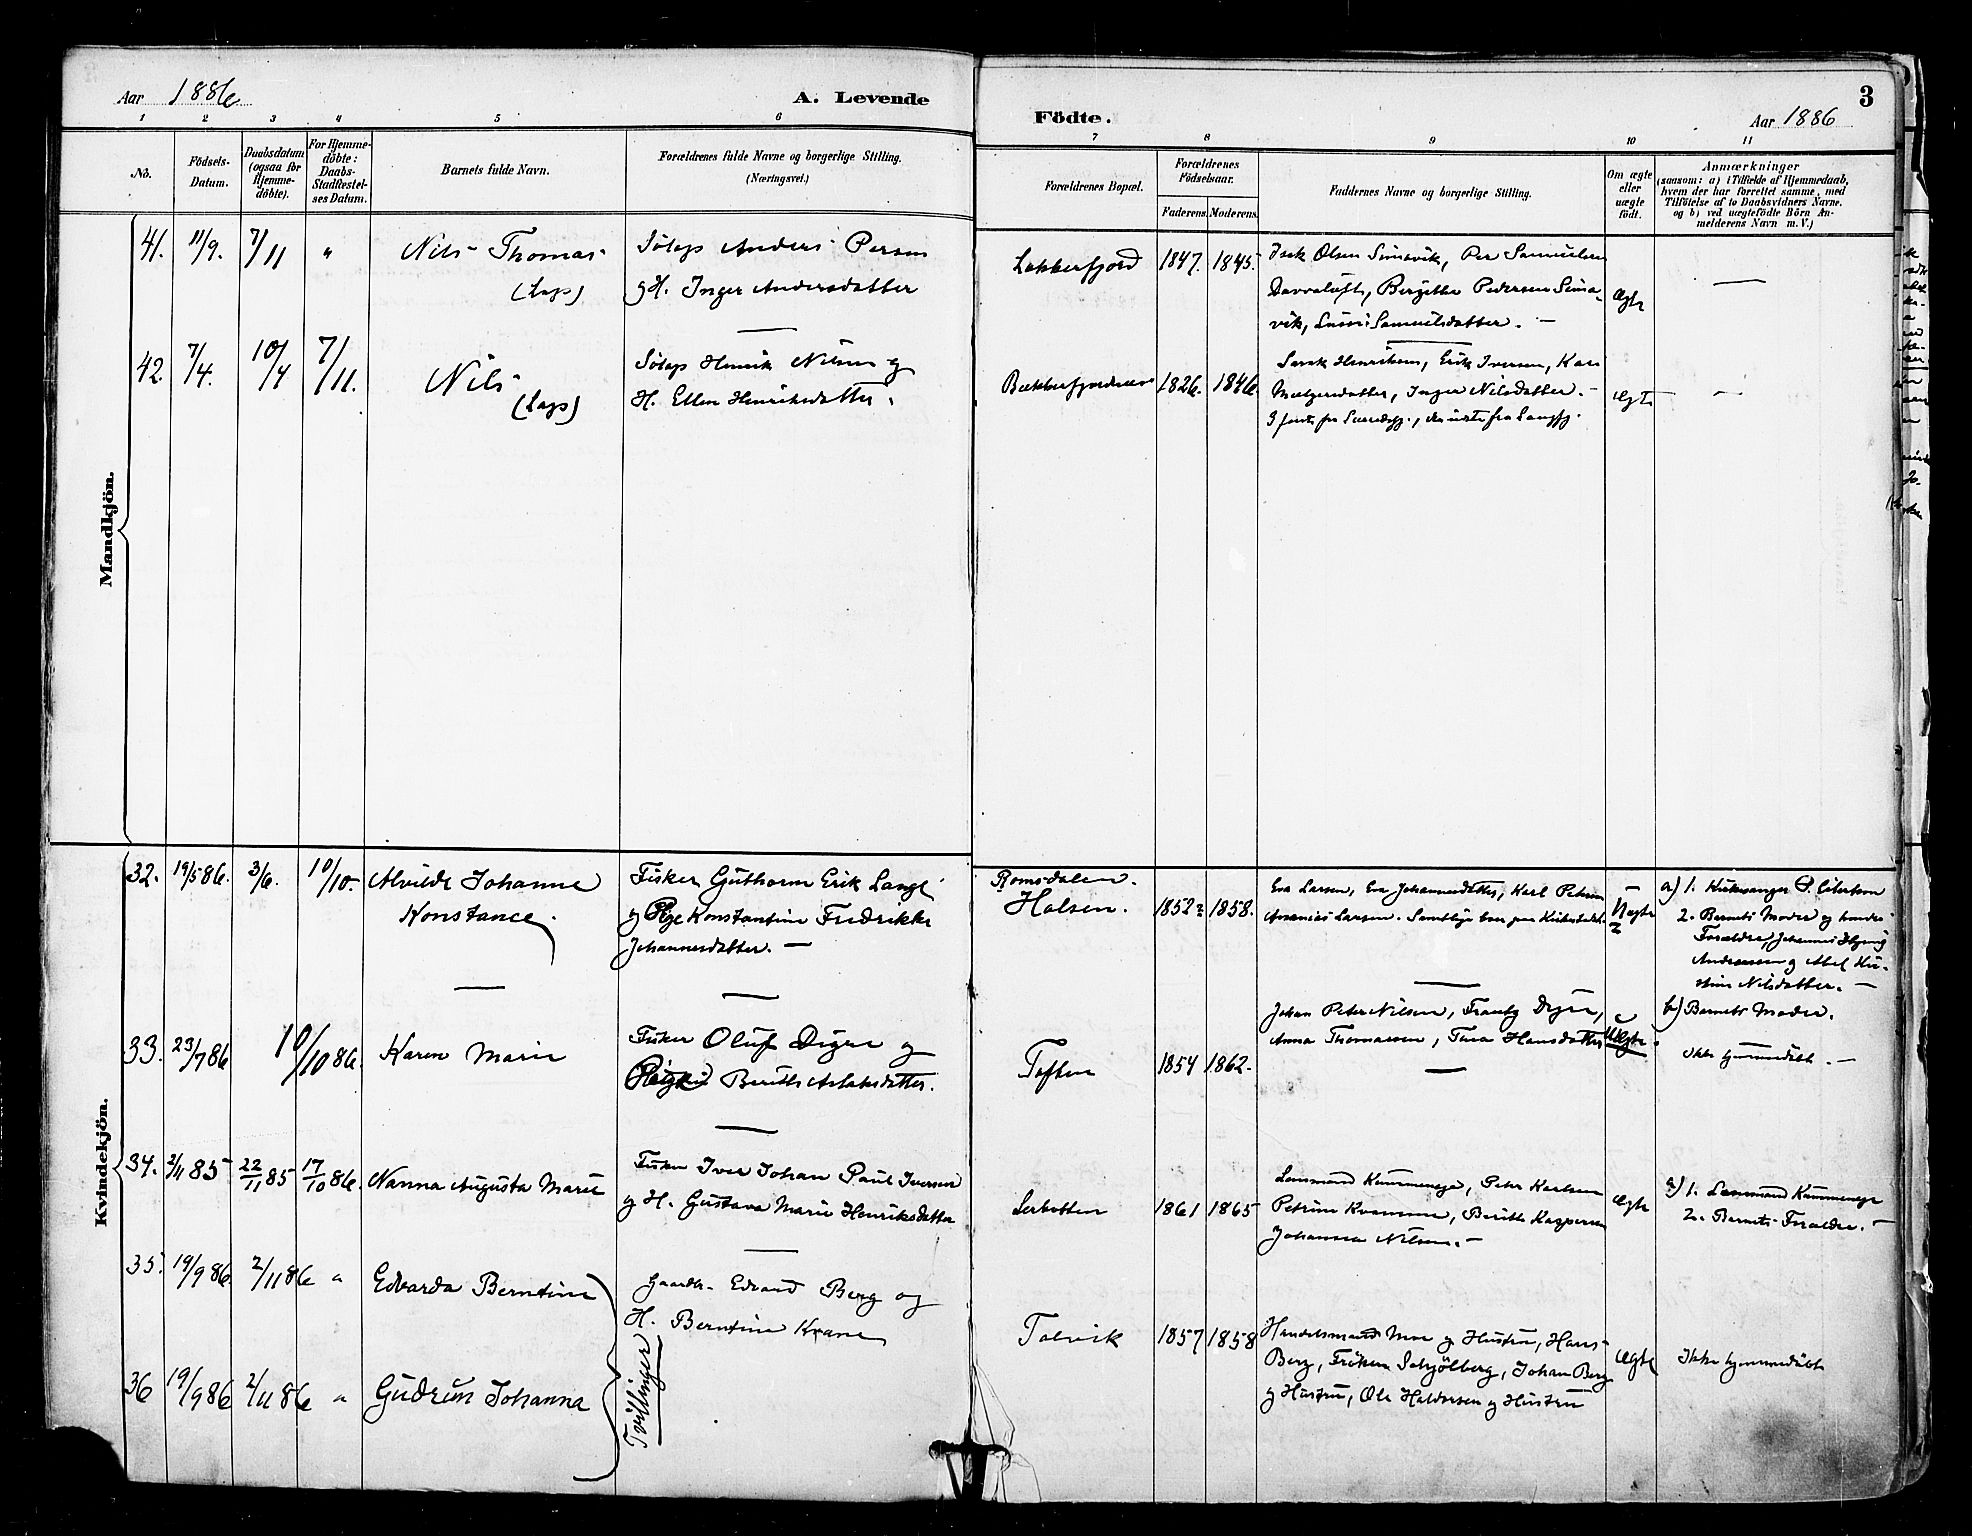 Aar 1886 A. Levende
Födte. Aar 1886 3
1 2 3 4 5 6 7 8 9 10 11
No.
Födsels-Datum.
Daabsdatum (ogsaa for Hjemme-döbte).
For Hjemme-döbte: Daabs-Stadfæstel-ses Datum.
Barnets fulde Navn.
Forældrenes fulde Navne og borgerlige Stilling.
(Næringsvei.)
Forældrenes Bopæl.
Forældrenes Födselsaar.
Faderens. Moderens.
Faddernes Navne og borgerlige Stilling.
Om ægte eller uægte födt.
Anmærkninger
(saasom: a) i Tilfælde af Hjemmedaab,
hvem der har forrettet samme, med
Tilföielse af to Daabsvidners Navne,
og b) ved uægtefödte Börn An-
melderens Navn m. V.)
Mandkjön.
41. 11/9. 7/11 " Nils Thomas
(Lap)
Söfap Anders Persen
og H. Inger Andersdatter
Lakkerfjord 1847. 1845.
Isak Olsen Simavik, Per Samuelsen
Davvaluft, Bergitte Pedersen Sima-
vik, Samuelsdatter. —
Ægte —
42. 7/4. 10/4 7/11. Nils
(Lap)
Söfap Henrik Nilsen og
H. Ellen Henriksdatter.
Bækkerfjorden 1826. 1846
Isak Henriksen, Erik Iversen, Kari
datter, Inger Nilsdatter. -
3 fra fra Langfj.
Ægte —
Kvindekjön.
32. 19/5 86. 3/6. 10/10. Alvilde Johanne
Konstance.
Fisker Guthorm Erik Lange
og Pige Konstantine Fredrikke
Johannesdatter. —
Romsdalen.
Halsen. 1852 1858.
Eva Larsen, Eva Johannesdatter, Karl Petersen
Arsenius Larsen.
Uægte
a) 1. Kirkesanger P.
2. Barnets Moder og hendes
Forældre, Johannes
Andreassen og Abel Kri-
stine Nilsdatter. —
b) Barnets Moder.
33. 23/7 86 10/10 86. Karen Marie
Fisker Oluf Digre og
Pige Berith Aslaksdatter.
Toften 1854 1862.
Johan Peter Nilsen, Frantz Digre,
Anna Thomassen, Hansdatter
Uægte
ikke hjemmedöbt. —
34. 2/11 85 22/11 85 17/10 86. Nanna Augusta Marie
Fisker Iver Johan Paul Iversen
og H. Gustava Marie Henriksdatter
Lerbotten 1861 1865
Lensmand Kummeneje, Peter Karlsen
Petrine Kvamme, Berith Kaspersen
Johanna Nilsen. —
Ægte
a) 1. Lensmand Kummeneje
2. Barnets Forældre. —
35. 19/9 86 2/11 86 " Edvarda Berntine
Gaardbr. Edvard Berg og
H. Berntine Krane
Talvik 1857 1858
Handelsmand Moe og Hustru, Hans
Berg, Fröken Schjölberg, Johan Berg
og Hustru, Ole Haldorsen og Hustru
Ægte
Ikke hjemmedöbt
36 19/9 86 2/11 86 " Gudrun Johanna
Tvillinger